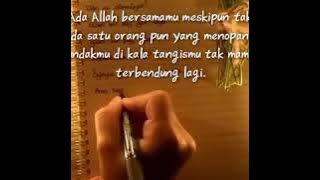 Ada Allah bersamamu meskipun tak
da satu orang pun yang menopan
ndakmu di kala tangismu tak mam
terbendung lagi.